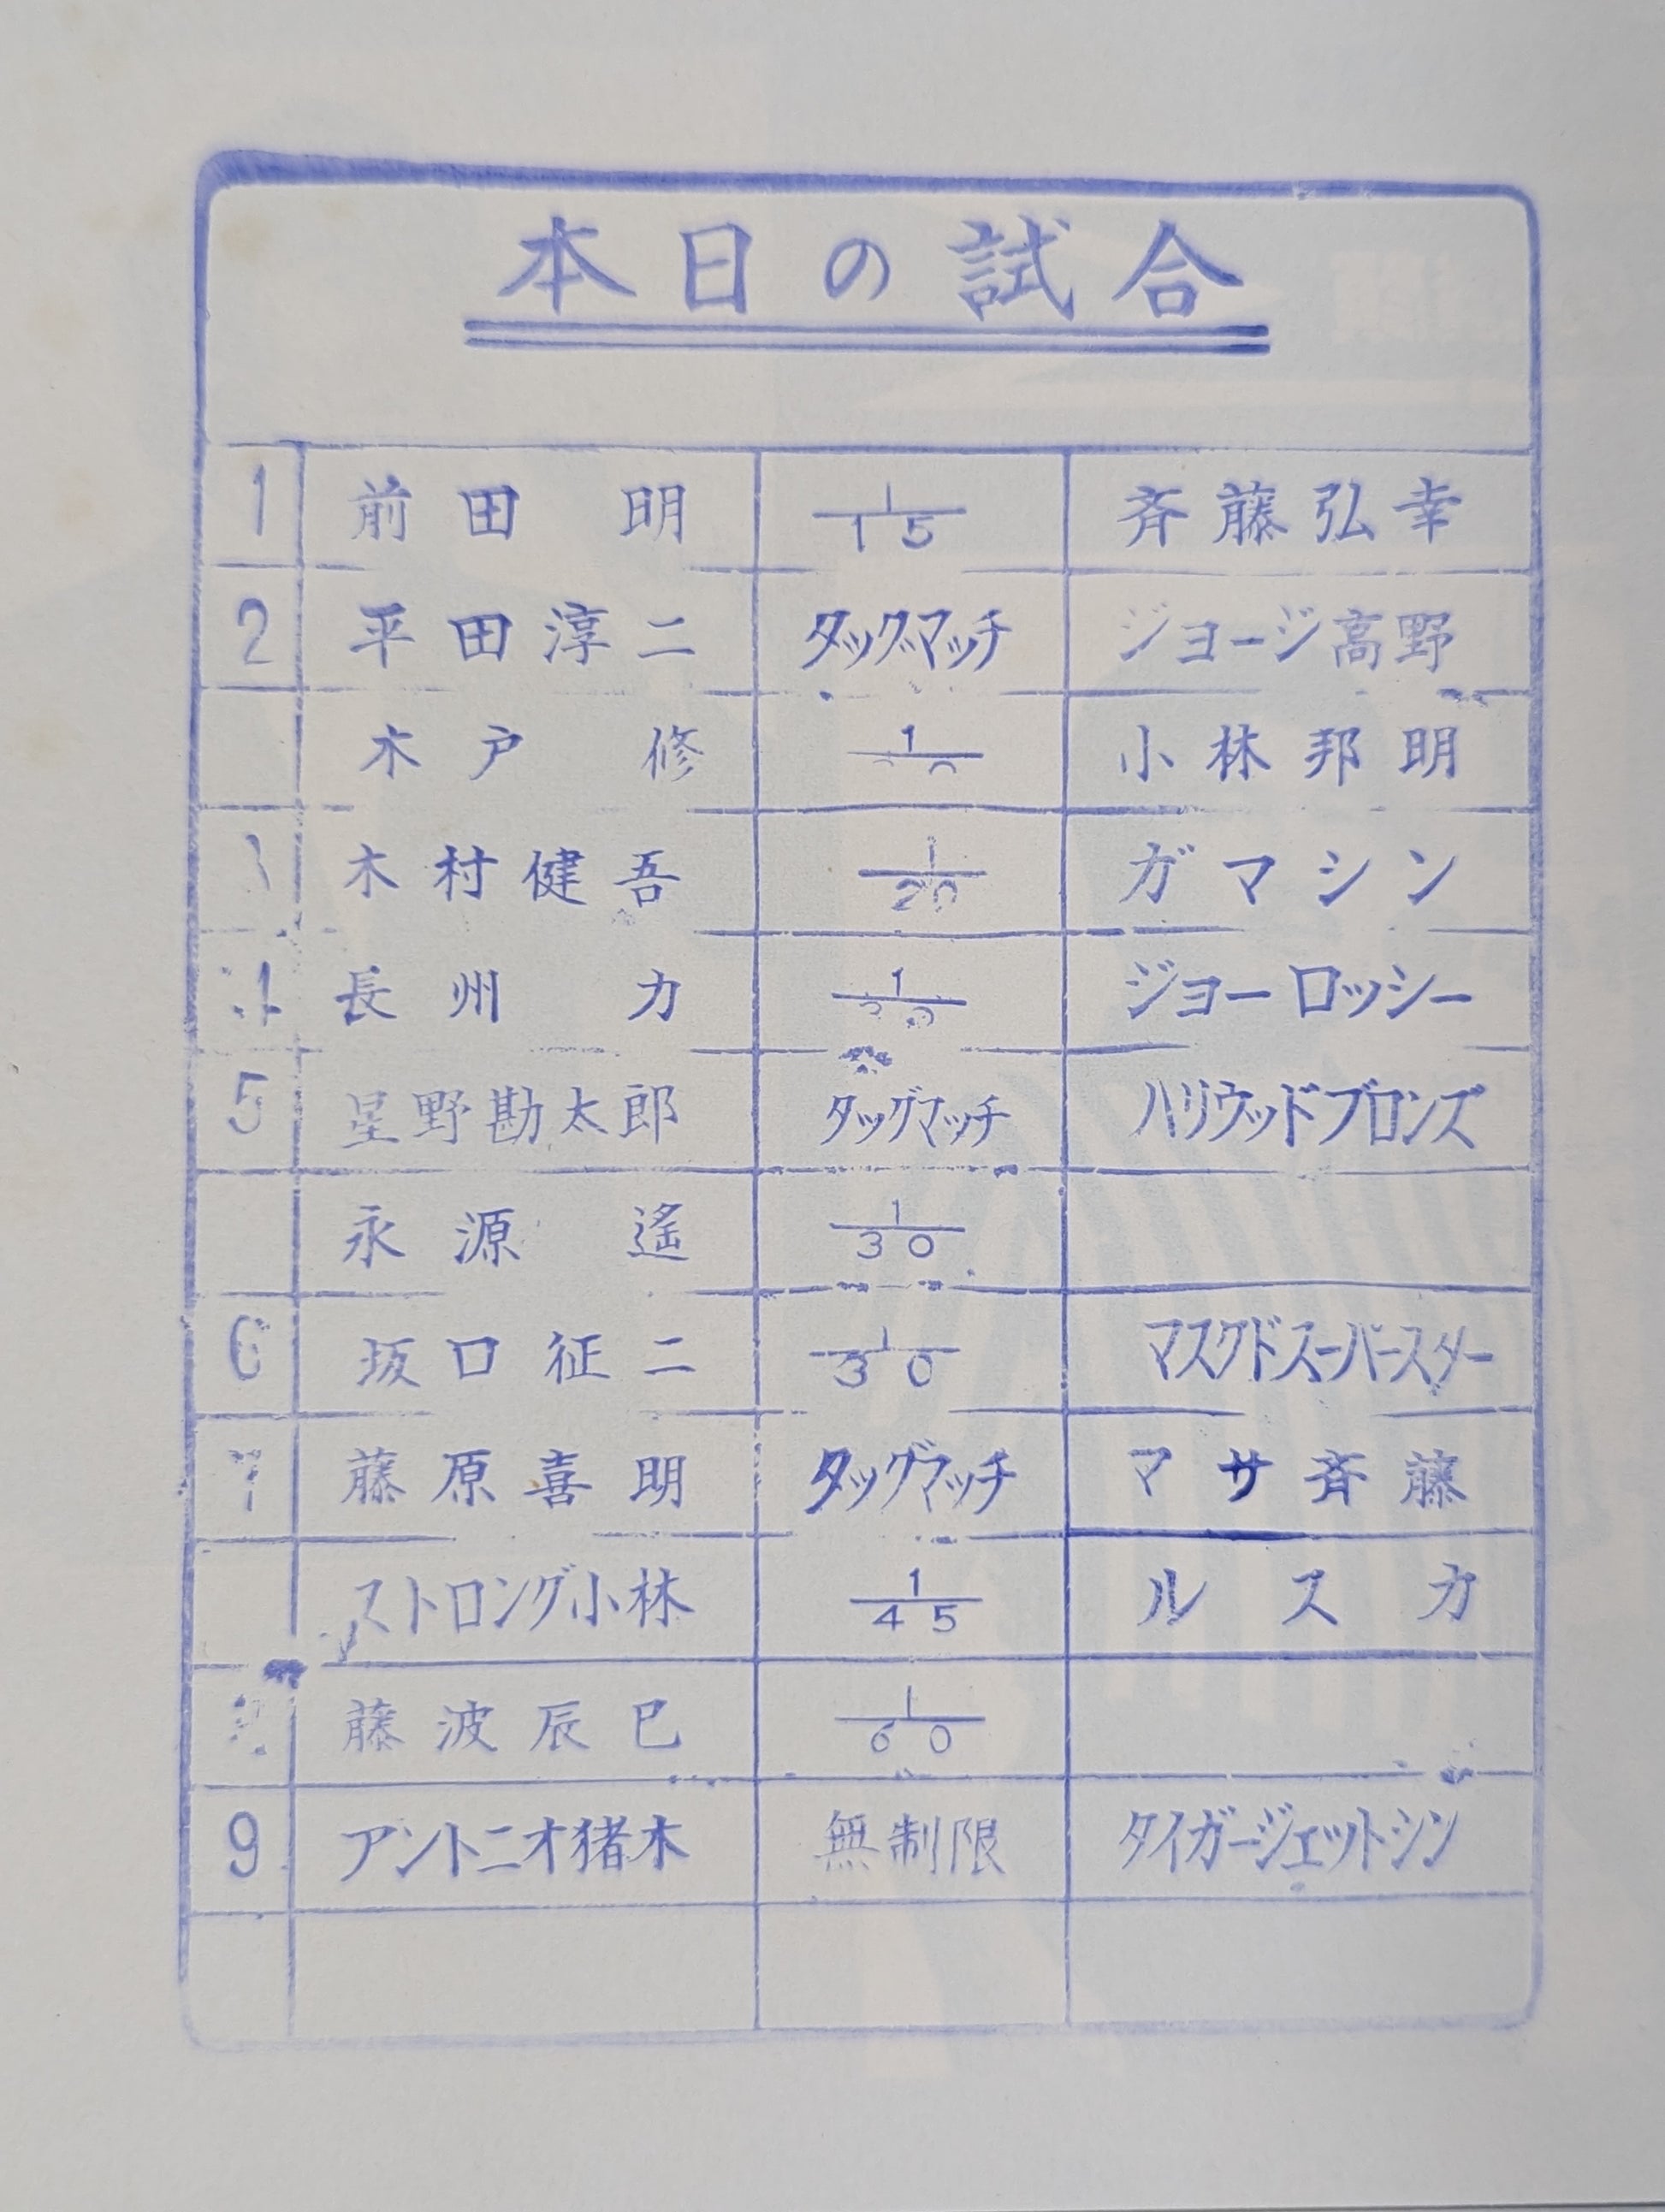 本日の試合
1 前田 明 1/15 斉藤弘幸
2 平田淳二 タッグマッチ ジョージ高野
木戸 修 1 小林邦明
木村健吾 1/20 ガマシン
長州 力 1 ジョーロッシー
5 星野勘太郎 タッグマッチ ハリウッドブロンズ
永源 遙 1/30
6 坂口征二 1/30 マスクドスーパースター
7 藤原喜明 タッグマッチ マサ斉藤
ストロング小林 1/45 ルスカ
藤波辰巳 1/60
9 アントニオ猪木 無制限 タイガージェットシン